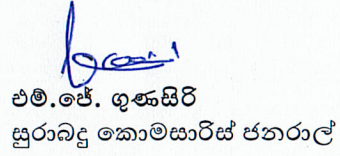 එම්.ජේ. ගුණසිරි
සුරාබදු කොමසාරිස් ජනරාල්